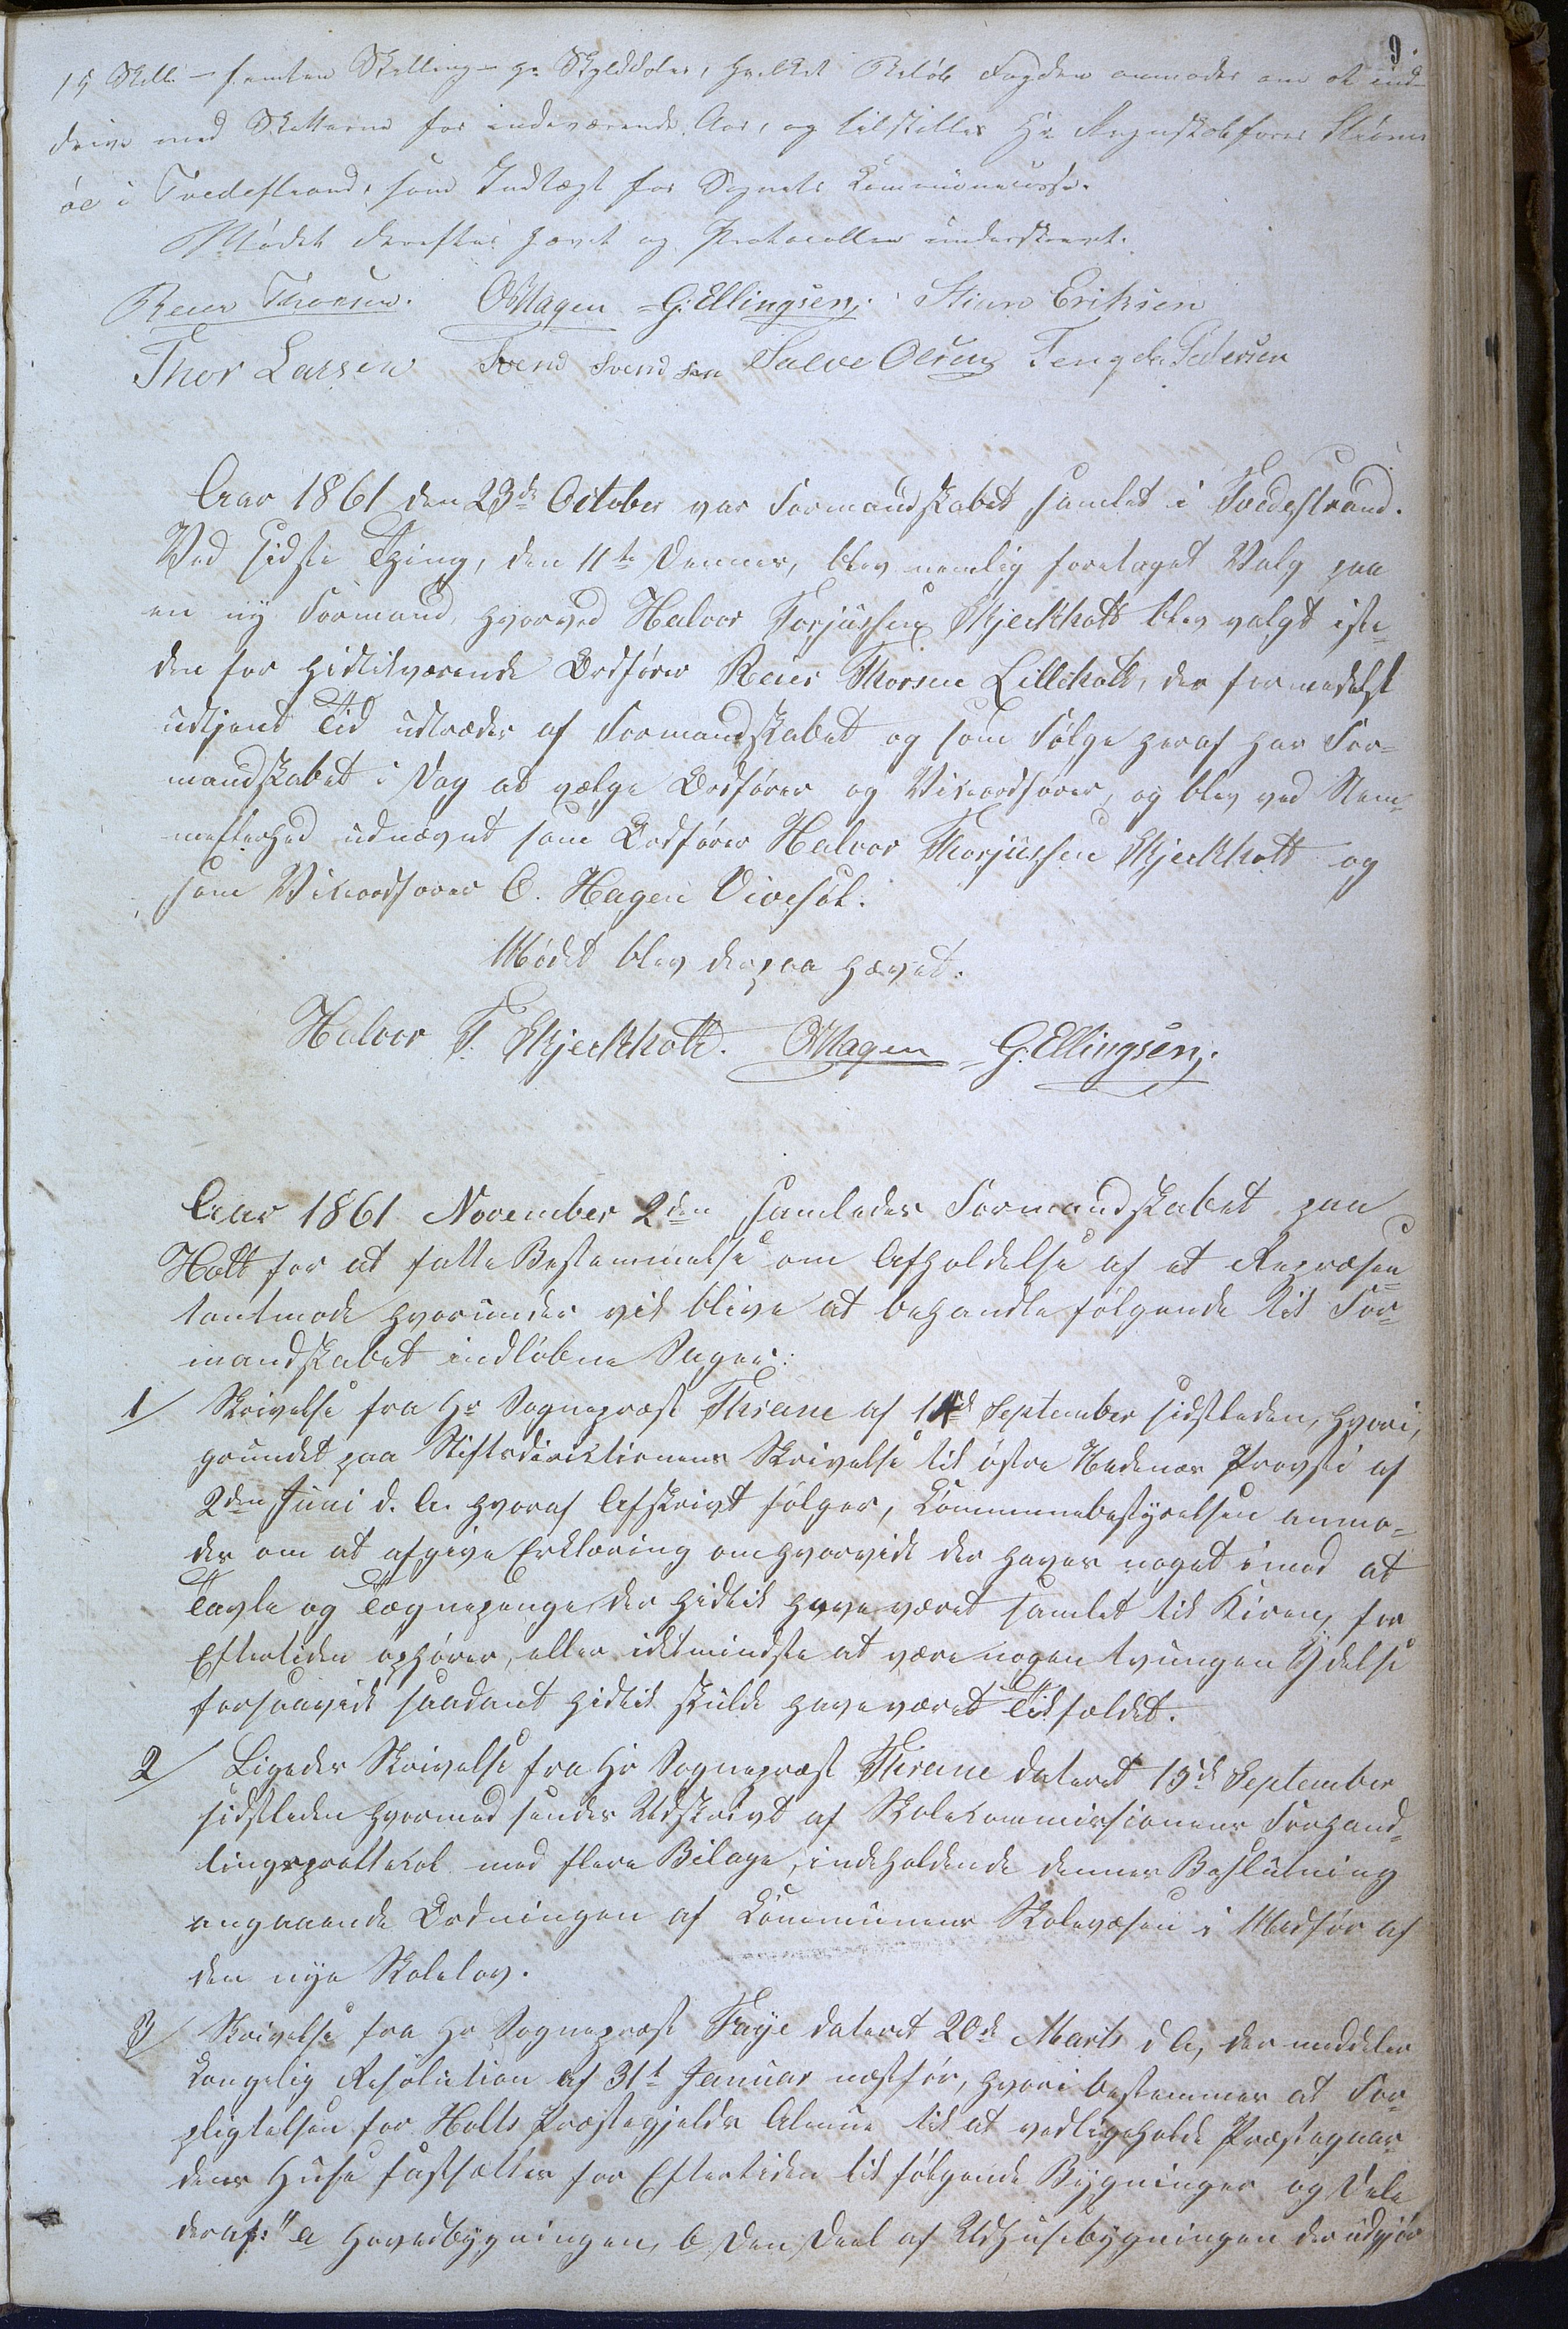 9.
15 Skill. – femten Skilling – pr Skylddaler, hvilket Beløb Fogden anmodes om at ind-
drive med Skatterne for indeværende Aar, og tilstilles Hr Regnskabsfører
i Tvedestrand, som Indtægt for Sognets Communecasse.
Mødet derefter hævet og Protocollen underskrevet.
Reier Thorsen. OHagen G. Ellingsen. Stian Eriksen
Thor Larsen Svend Svendsen Salve Olsen Pedersen
Aar 1861 den 23de October var Formandskabet samlet i Tvedestrand.
Ved sidste Thing, den 11te dennes, blev nemlig foretaget Valg paa
en ny Formand, hvorved Halvor Torjussen Skjerkholt blev valgt iste-
den for hidtilværende Ordfører Reier Thorsen Lilleholt, der formedelst
udtjent Tid udtræder af Formandskabet og som Følge heraf har For-
mandskabet i Dag at vælge Ordfører og Viceordfører, og blev ved Stem-
mefleerhed udnævnt som Ordfører Halvor Thorjussen Skjerkholt og
som Viceordfører O. Hagen
Mødet blev derpaa hævet.
Halvor T. Skjerkholt. OHagen G. Ellingsen.
Aar 1861 November 2den samledes Formandskabet paa
Holt for at fatte Bestemmelse om Afholdelse af et Repræsen-
tantmøde hvorunder vil blive at behandle følgende til For-
mandskabet indløbne Sager:
1/ Skrivelse fra Hr Sognepræst Thrane af 14de September sidstleden, hvori,
grundet paa Stiftsdirektionens Skrivelse til østre Nedenæs Provsti af
2den Juni d. A. hvoraf Afskrivt følger, Communebestyrelsen anmo-
des om at afgive Erklæring om hvorvidt der haves noget imod at
Tavle og Tægnepenge, der hidtil have været samlet til Kirken, for
Eftertiden ophører, eller idetmindste at være nogen tvungen Ydelse
forsaavidt saadant hidtil skulde have været Tilfældet.
2/ Ligedes Skrivelse fra Hr Sognepræst Thrane dateret 13de September
sidstleden hvormed sendes Udskrivt af Skolekommissionens Forhand-
lingsprottekol med flere Bilage, indeholdende dennes Beslutning
angaaende Ordningen af Communens Skolevæsen i Medfør af
den nye Skolelov.
3/ Skrivelse fra Hr Sognepræst Faye dateret 20de Marts d A, der meddeler
Kongelig Resolution af 31t Januar næstfør, hvori bestemmes at For-
pligtelsen for Holts Præstegjelds Almue til at vedligeholde Præstegaar-
dens Huse fastsættes for Eftertiden til følgende Bygninger og Dele
deraf: "a Hovedbygningen, b, den Deel af Udhusebygningen der udgjør